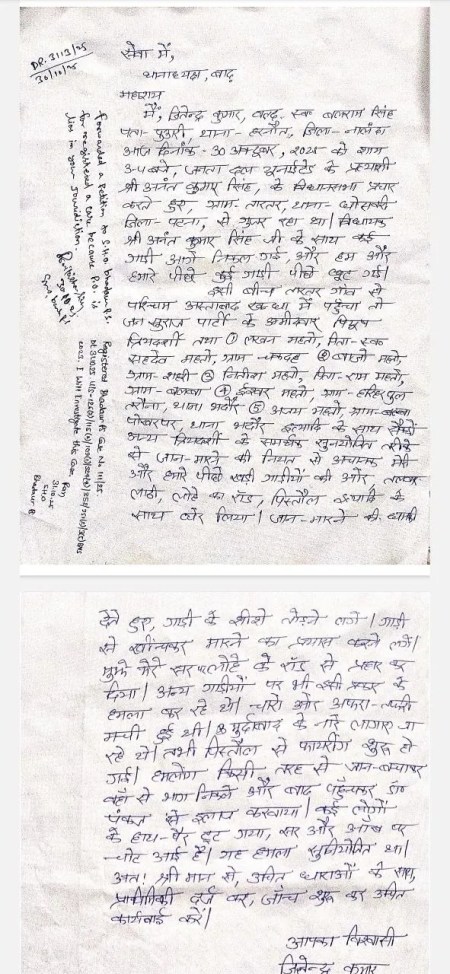 DR. 3113/25
30/10/25
सेवा में,
थानाध्यक्ष, बाढ़
महाशय
मैं, जितेन्द्र कुमार, वल्द- स्व० बलराम सिंह
पता- थाना- हरनौत, जिला- नालंदा
आज दिनांक- 30 अक्टूबर, 2025 को शाम
3-4 बजे, जनता दल यूनाइटेड के प्रत्याशी
श्री अनंत कुमार सिंह, के विधानसभा प्रचार
करते हुए, ग्राम- तारतर, थाना- घोसवरी
जिला- पटना, से गुजर रहा था। विधायक
श्री अनंत कुमार सिंह जी के साथ कई
गाड़ी आगे निकल गई, और हम और
हमारे पीछे कई गाड़ी पीछे छूट गई।
इसी बीच तारतर गाँव से
पश्चिम बसावनचक खन्धा में पहुँचा तो
जन सुराज पार्टी के उम्मीदवार पियूष
प्रियदर्शी तथा ① लखन महतो, पिता- स्व०
सहदेव महतो, ग्राम- ② बाजो महतो,
ग्राम- ③ नितीश महतो, पिता- राम महतो,
ग्राम- ④ ईश्वर महतो, ग्राम-
थाना भदौर ⑤ अजय महतो, ग्राम-
थाना भदौर इत्यादि के साथ सैकड़ों
अन्य प्रियदर्शी के समर्थक सुनियोजित तरीके
से जान-मारने की नियत से अचानक मेरी
और हमारे पीछे खड़ी गाड़ीयों की ओर, तलवार
लाठी, लोहे का रॉड, पिस्तौल इत्यादि के
साथ घेर लिया। जान-मारने की धमकी
Forwarded a petition to S.H.O. bhadaur P.S.
for registered a case because P.O. is
lies in your Jurisdiction.
30/10/25
Registered Bhadaur PS Case No. 111/25
dt 31.10.25
2023. I will Investigate this case
31.10.25
SHO
Bhadaur PS
देते हुए, गाड़ी के शीशे तोड़ने लगे। गाड़ी
से खींचकर मारने का प्रयास करने लगे।
मुझे मेरे सर पर लोहे के रॉड से प्रहार कर
दिया। अन्य गाड़ीयों पर भी इसी प्रकार के
हमला कर रहे थे। चारो ओर अफरा-तफरी
मची हुई थी। मुर्दाबाद के नारे लगाए जा
रहे थे। तभी पिस्तौल से फायरींग शुरू हो
गई। हमलोग किसी तरह से जान-बचाकर
वहाँ से भाग निकले और बाढ़ पहुँचकर डॉ०
पंकज से इलाज करवाया। कई लोगों
के हाथ-पैर टूट गया, सर और आँख पर
चोट आई है। यह हमला सुनियोजित था।
अतः श्री मान से, उचित धाराओं के साथ,
प्राथमिकी दर्ज कर, जाँच शुरू कर उचित
कार्रवाई करें।
आपका विश्वासी
जितेन्द्र कुमार